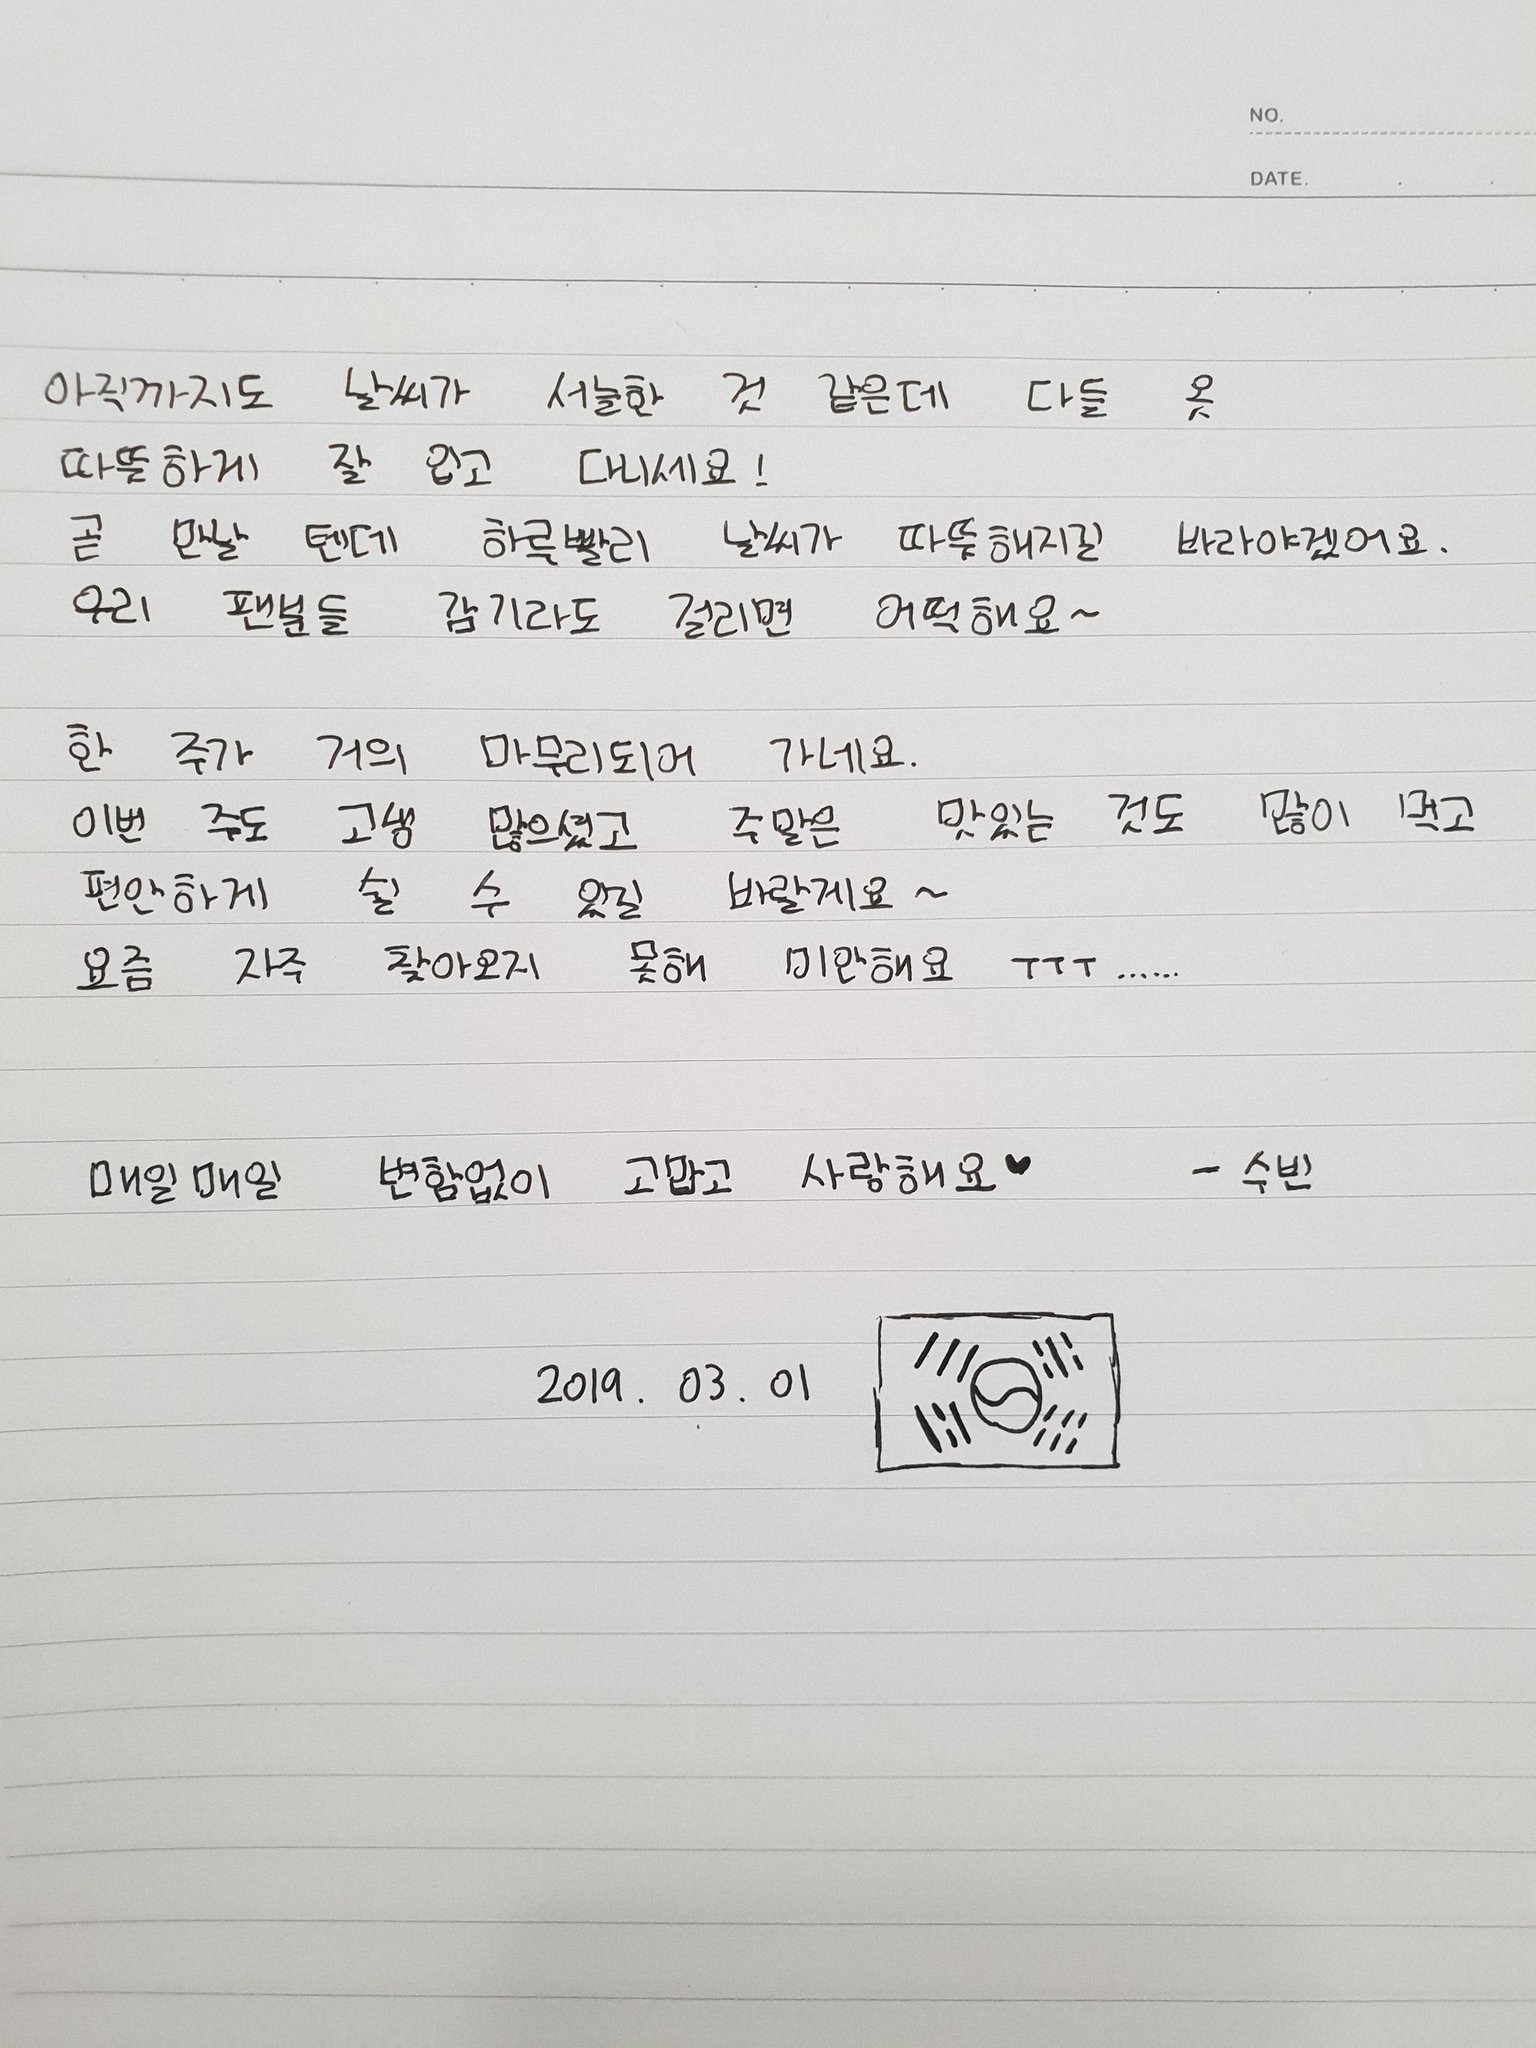 NO.
DATE.
아직까지도 날씨가 서늘한 것 같은데 다들 옷
따뜻하게 잘 입고 다니세요!
곧 만날 텐데 하루빨리 날씨가 따뜻해지길 바라야겠어요.
우리 팬분들 감기라도 걸리면 어떡해요~
한 주가 거의 마무리되어 가네요.
이번 주도 고생 많으셨고 주말은 맛있는 것도 많이 먹고
편안하게 쉴 수 있길 바랄게요~
요즘 자주 찾아오지 못해 미안해요 ㅜㅜㅜ......
매일매일 변함없이 고맙고 사랑해요♥ - 수빈
2019. 03. 01